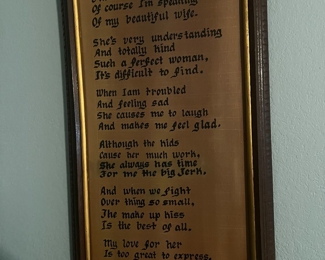 Of course I'm speaking
Of my beautiful wife.
She's very understanding
And totally kind
Such a perfect woman,
It's difficult to find.
When I am troubled
And feeling sad
She causes me to laugh
And makes me feel glad.
Although the kids
Cause her much work,
She always has time
For me the big Jerk.
And when we fight
Over thing so small,
The make up kiss
Is the best of all.
My love for her
Is too great to express,